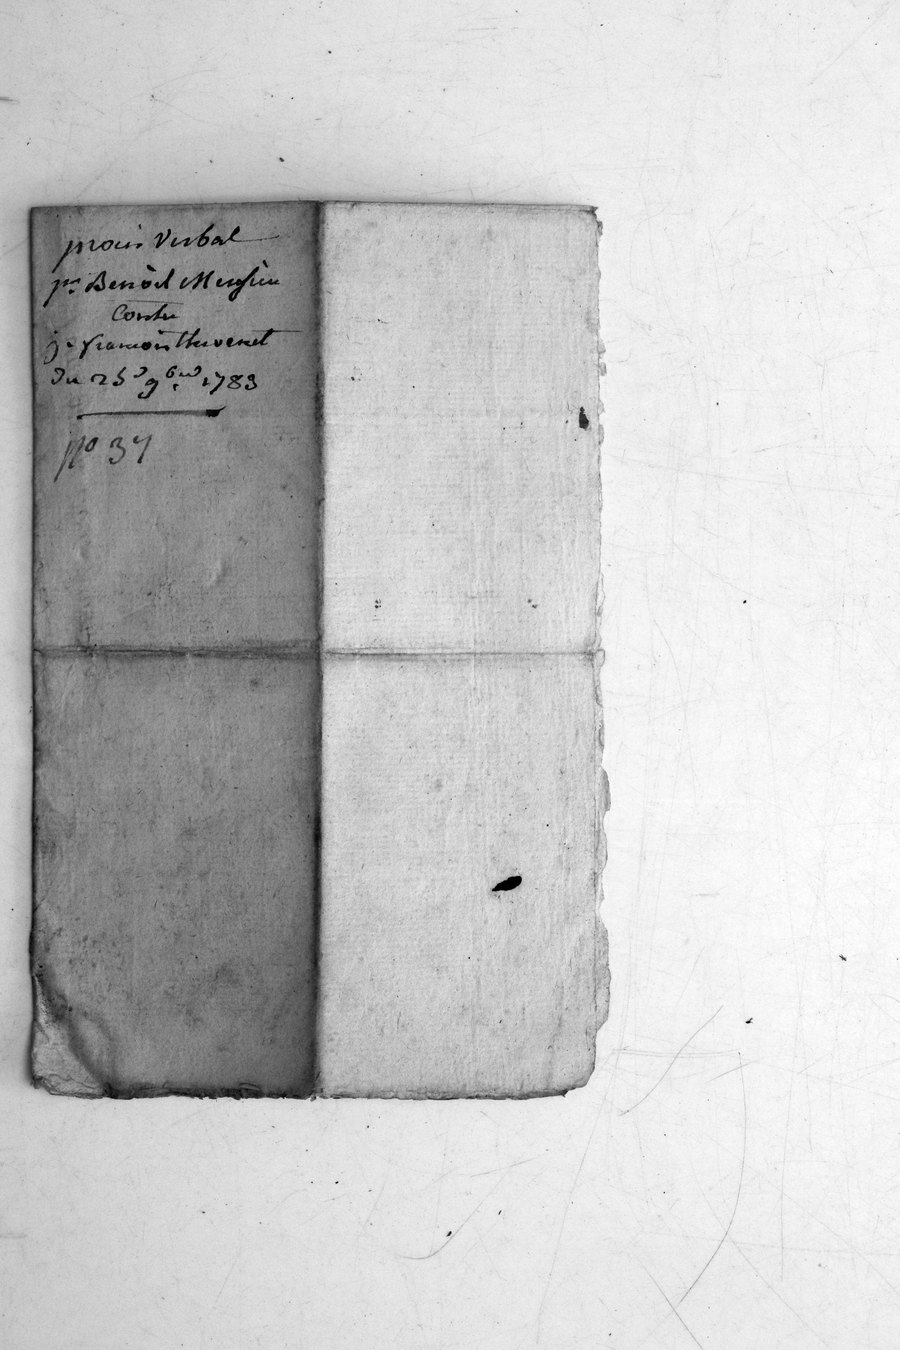 procès Verbal
pr. Benoît Mugnier
Contre
françois thevenet
du 25d 9bre 1783
No 37